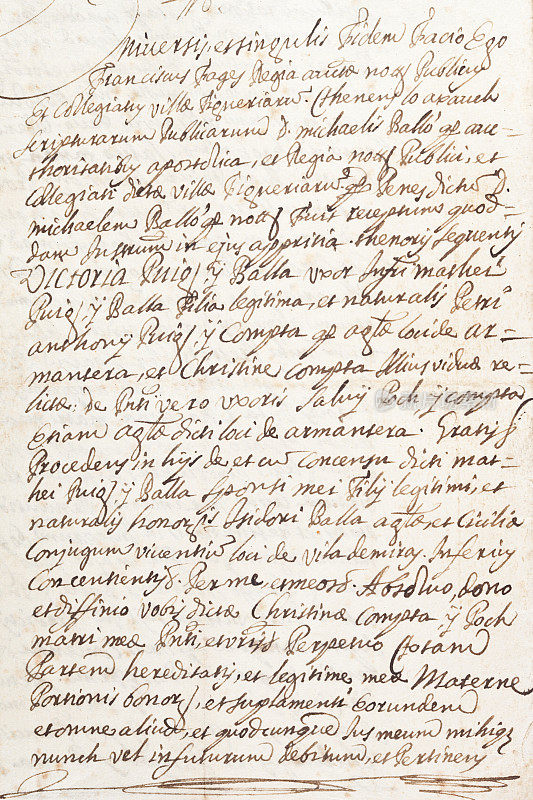 Universis, et singulis Fidem Facio Ego
Franciscus Fages Regia auctæ notƺ Publicus
Et Collegiatus villæ Figueriarũ
scripturarum Publicarum D. michaelis Balló qº auc-
thoritatibꝰ apostolica, et Regia notƺ Publici, et
Collegiati dictæ villæ Figueriarũ Penes dictũ D.
michaelem Balló qº notƺ Fuit receptum quod-
dam Instrum in ejus apprisia thenoris sequentis
Victoria Puig, y Balla uxor mathei
Puig, y Balla Filia legitima, et naturalis Petri
anthonij Puig, y Compta qº agtæ loci de ar-
mantera, et Christine compta illius viduæ re-
lictæ: de vero uxoris salvij Poch y compta
Etiam agtæ dicti loci de armantera. Gratis
Procedens in his de, et cũ concensu dicti mat-
hei Puig, y Balla sponsi mei Filij legitimi, et
naturalis Isidori Balla agtæ, et Ciciliæ
conjugum viventiũ loci de vila de miras. Inferius
Concentientis. Per me, et meos. Absolvo, dono
et diffinio vobis dictæ Christinæ compta y Poch
matri meæ et vris Perpetuo totam
Partem hereditatis, et legitime meæ Materne
Portionis bonorƺ, et suplementi eorundem
et omne aliud, et quodcunque Jus meum mihiqƺ
nunch vel in futurum debitum, et Pertinens